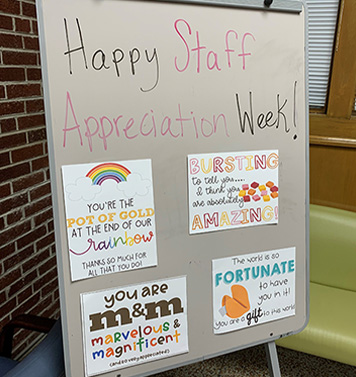 Happy Staff
Appreciation Week!
YOU'RE THE
POT OF GOLD
AT THE END OF OUR
rainbow
THANKS SO MUCH FOR
ALL THAT YOU DO!
BURSTING
to tell you....
& think you
are absolutely
AMAZING!
you are
m&m
marvelous &
magnificent
(and oh very appreciated)
The world is so
FORTUNATE
to have
you in it!
you are a gift to this world